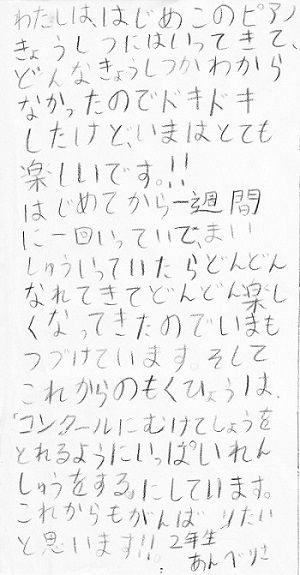 わたしは、はじめこのピアノ
きょうしつにはいってきて、
どんなきょうしつかわから
なかったのでドキドキ
したけど、いまはとても
楽しいです。!!
はじめてから一週間
に一回いっていて、まい
しゅういっていたらどんどん
なれてきてどんどん楽し
くなってきたのでいまも
つづけています。そして
これからのもくひょうは、
「コンクールにむけてしょうを
とれるようにいっぱいれん
しゅうをする」にしています。
これからもがんばりたい
と思います!!。2年生
あんべりさ